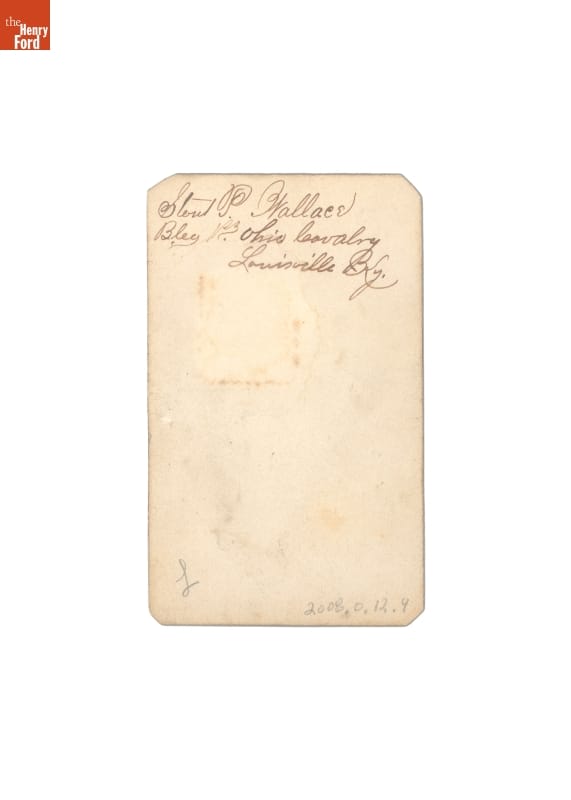 the
Henry
Ford
Stout P Wallace
1st Ohio Cavalry
Louisville Ky.
2008.0.12.9